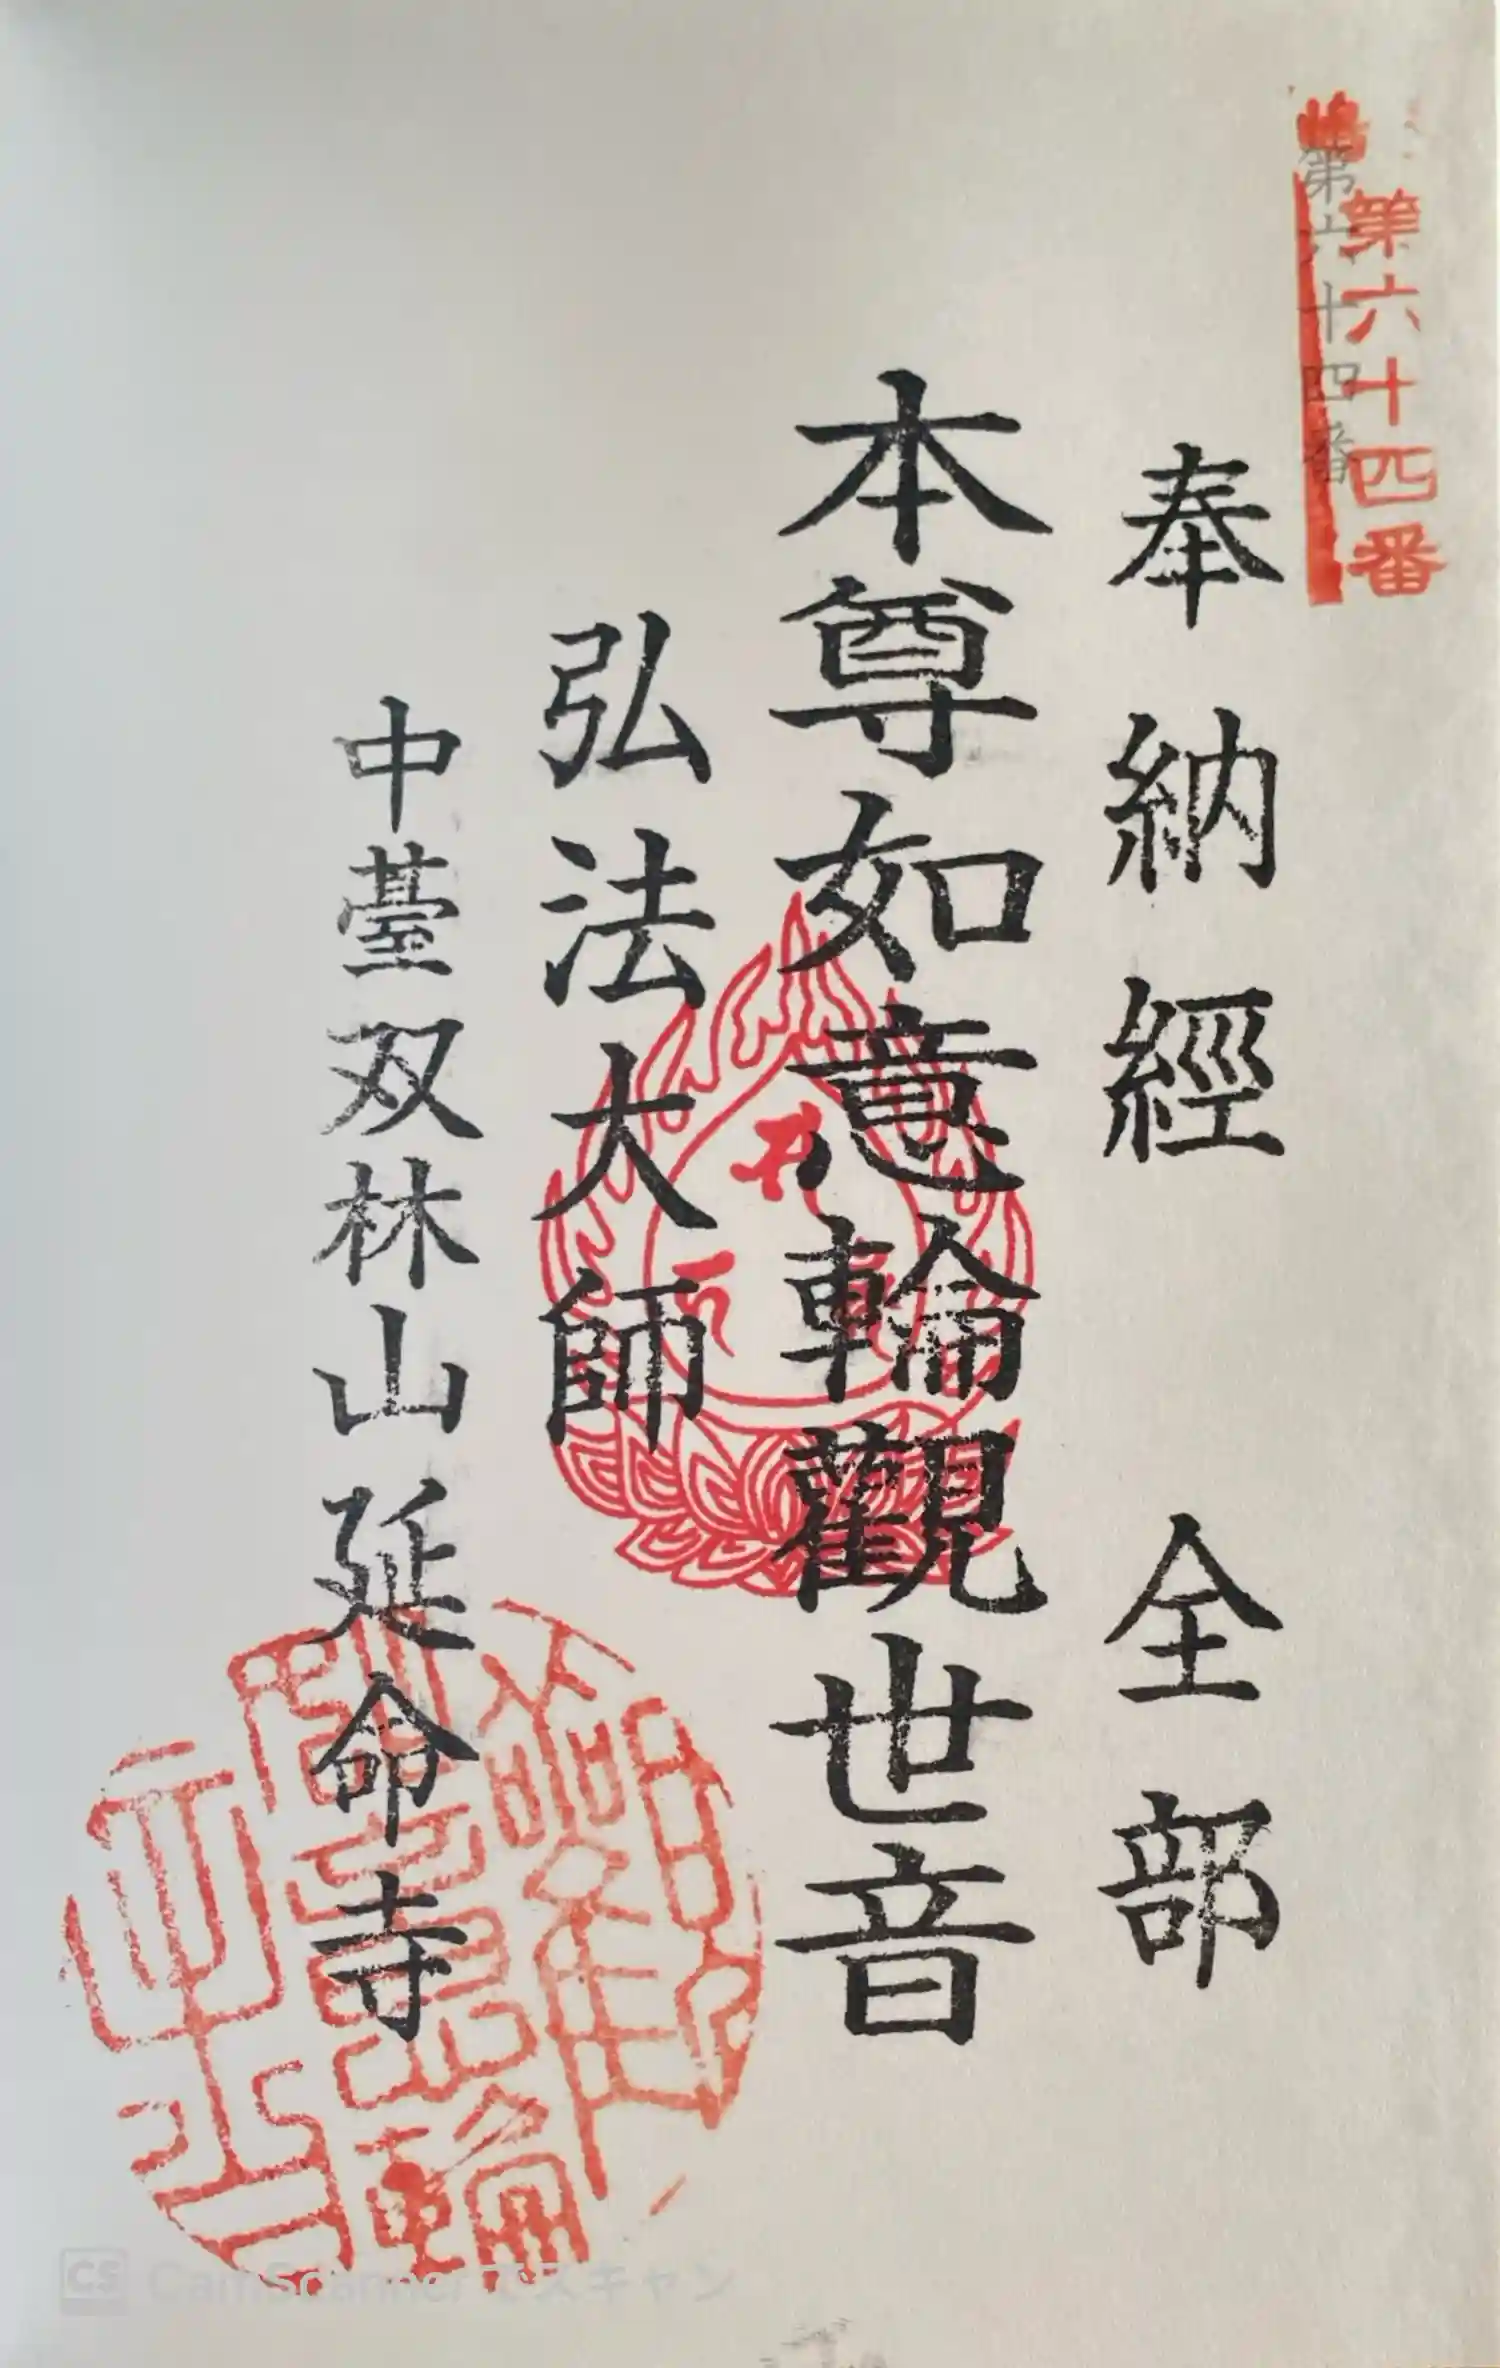 第六十四番
第六十四番
奉納經 全部
本尊如意輪觀世音
弘法大師
中臺双林山延命寺
CS CamScanner でスキャン